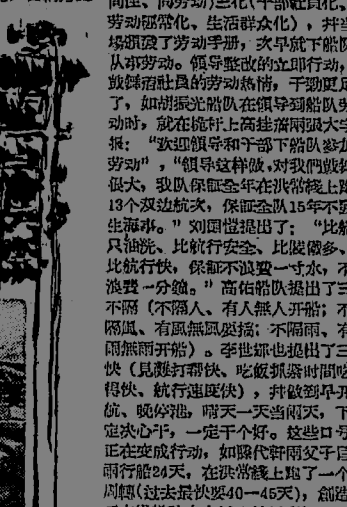 劳动经常化、生活群众化），并当
场颁发了劳动手册，次早就下船队
从事劳动。领导整改的立即行动，
鼓舞着社员的劳动热情，干劲更足
了，如胡振光船队在领导到船队劳
动时，就在桅杆上高挂着两张大字
报：“欢迎领导和干部下船队参加
劳动”，“领导这样做，对我们鼓舞
很大，我队保証全年在洪常綫上跑
13个双边航次，保証全队15年不发
生海事。”刘国愷提出了：“比船
只油洗、比航行安全、比
比航行快，保証不浪費一寸水，不
浪費一分鐘。”高佑船队提出了三
不隔（不隔人、有人無人开船；不
隔風、有風無風要搞；不隔雨、有
雨無雨开船）。李世 也提出了三
快（見灘打帮快、吃飯抓紧时間吃
得快、航行速度快），幷做到早开
航、晚停泊，晴天一天当兩天，下
定决心干，一定干个好。这些口号
正在变成行动，如
雨行船24天，在洪常綫上跑了一个
周轉(过去最快要40—45天)，創造